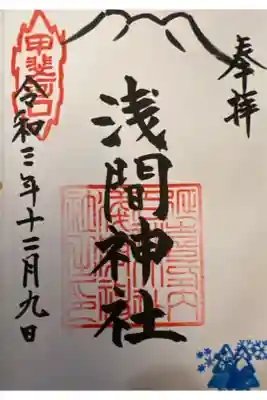 奉拝
浅間神社
甲斐
令和三年十二月九日